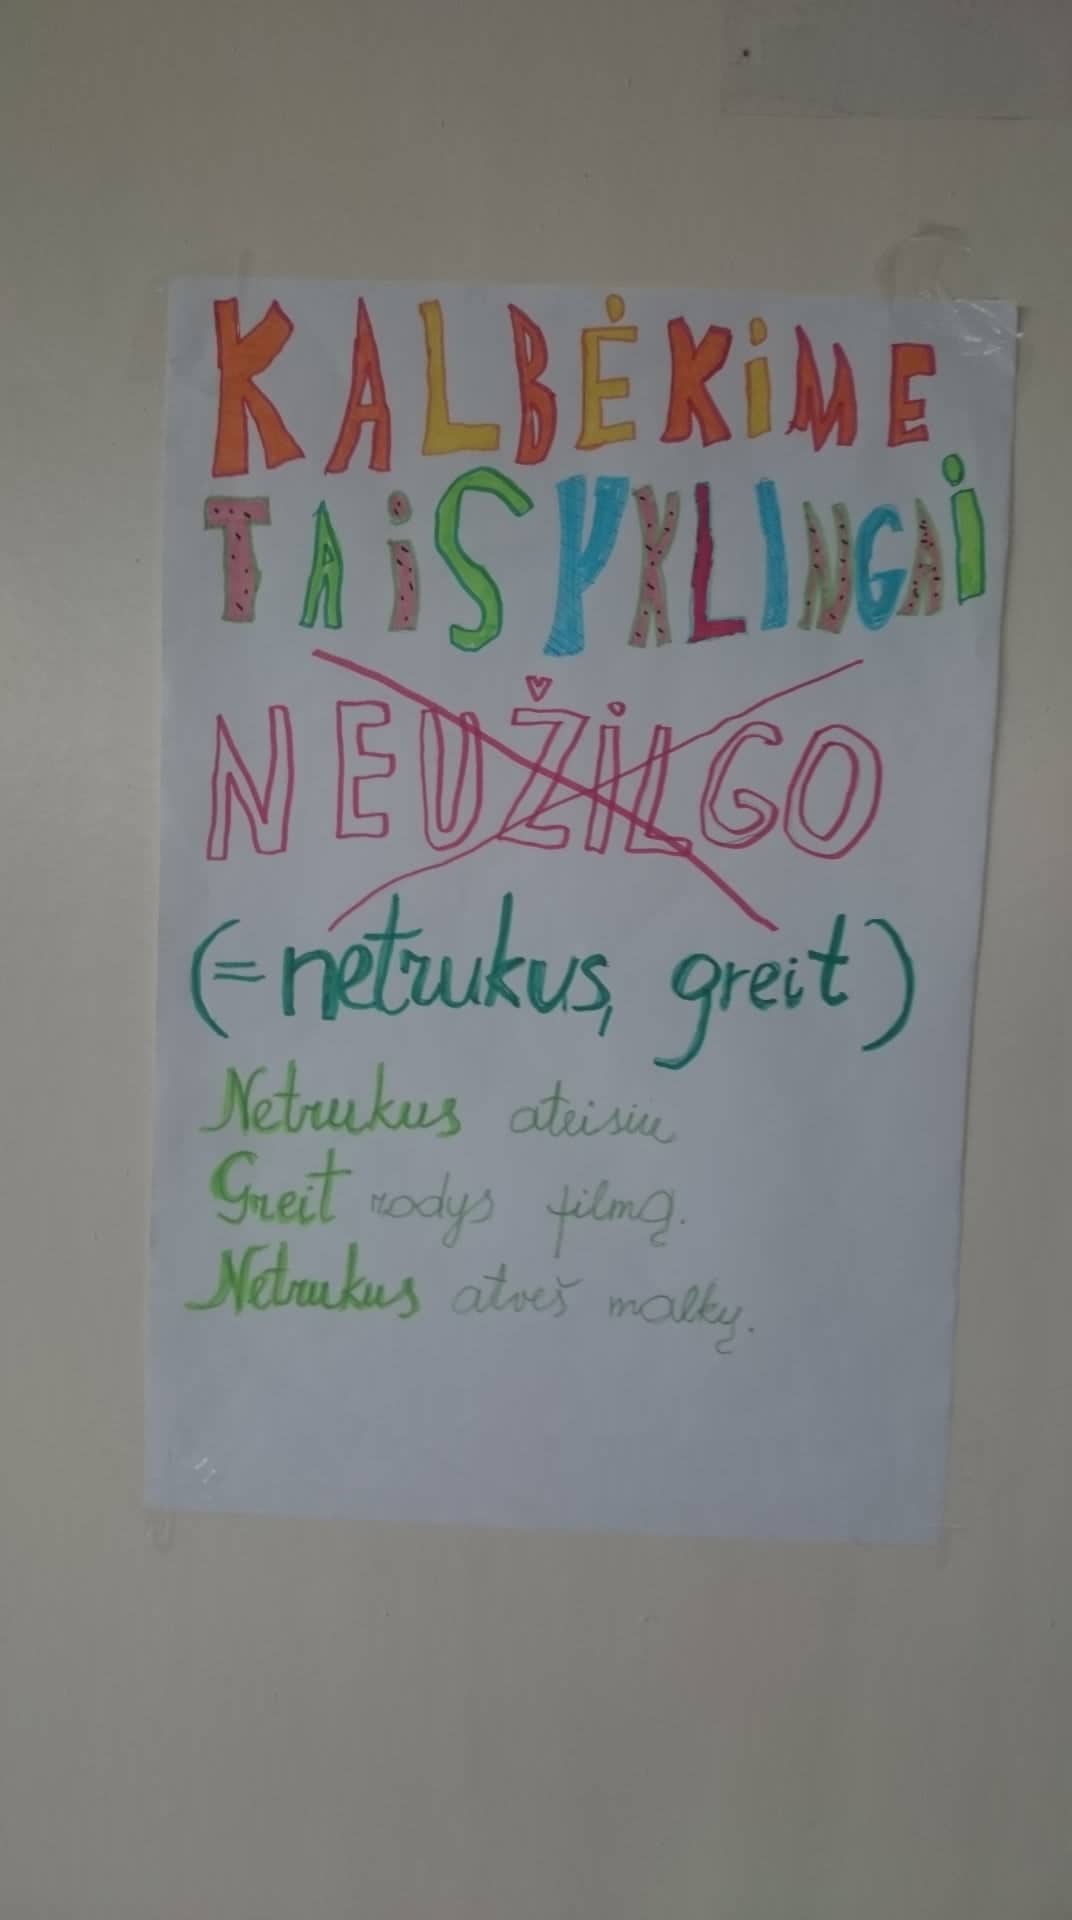 KALBĖKiME
TAiSYKLINGAi
NEUŽiLGO
(= netrukus, greit)
Netrukus ateisiu
Greit rodys filmą.
Netrukus atveš malkų.